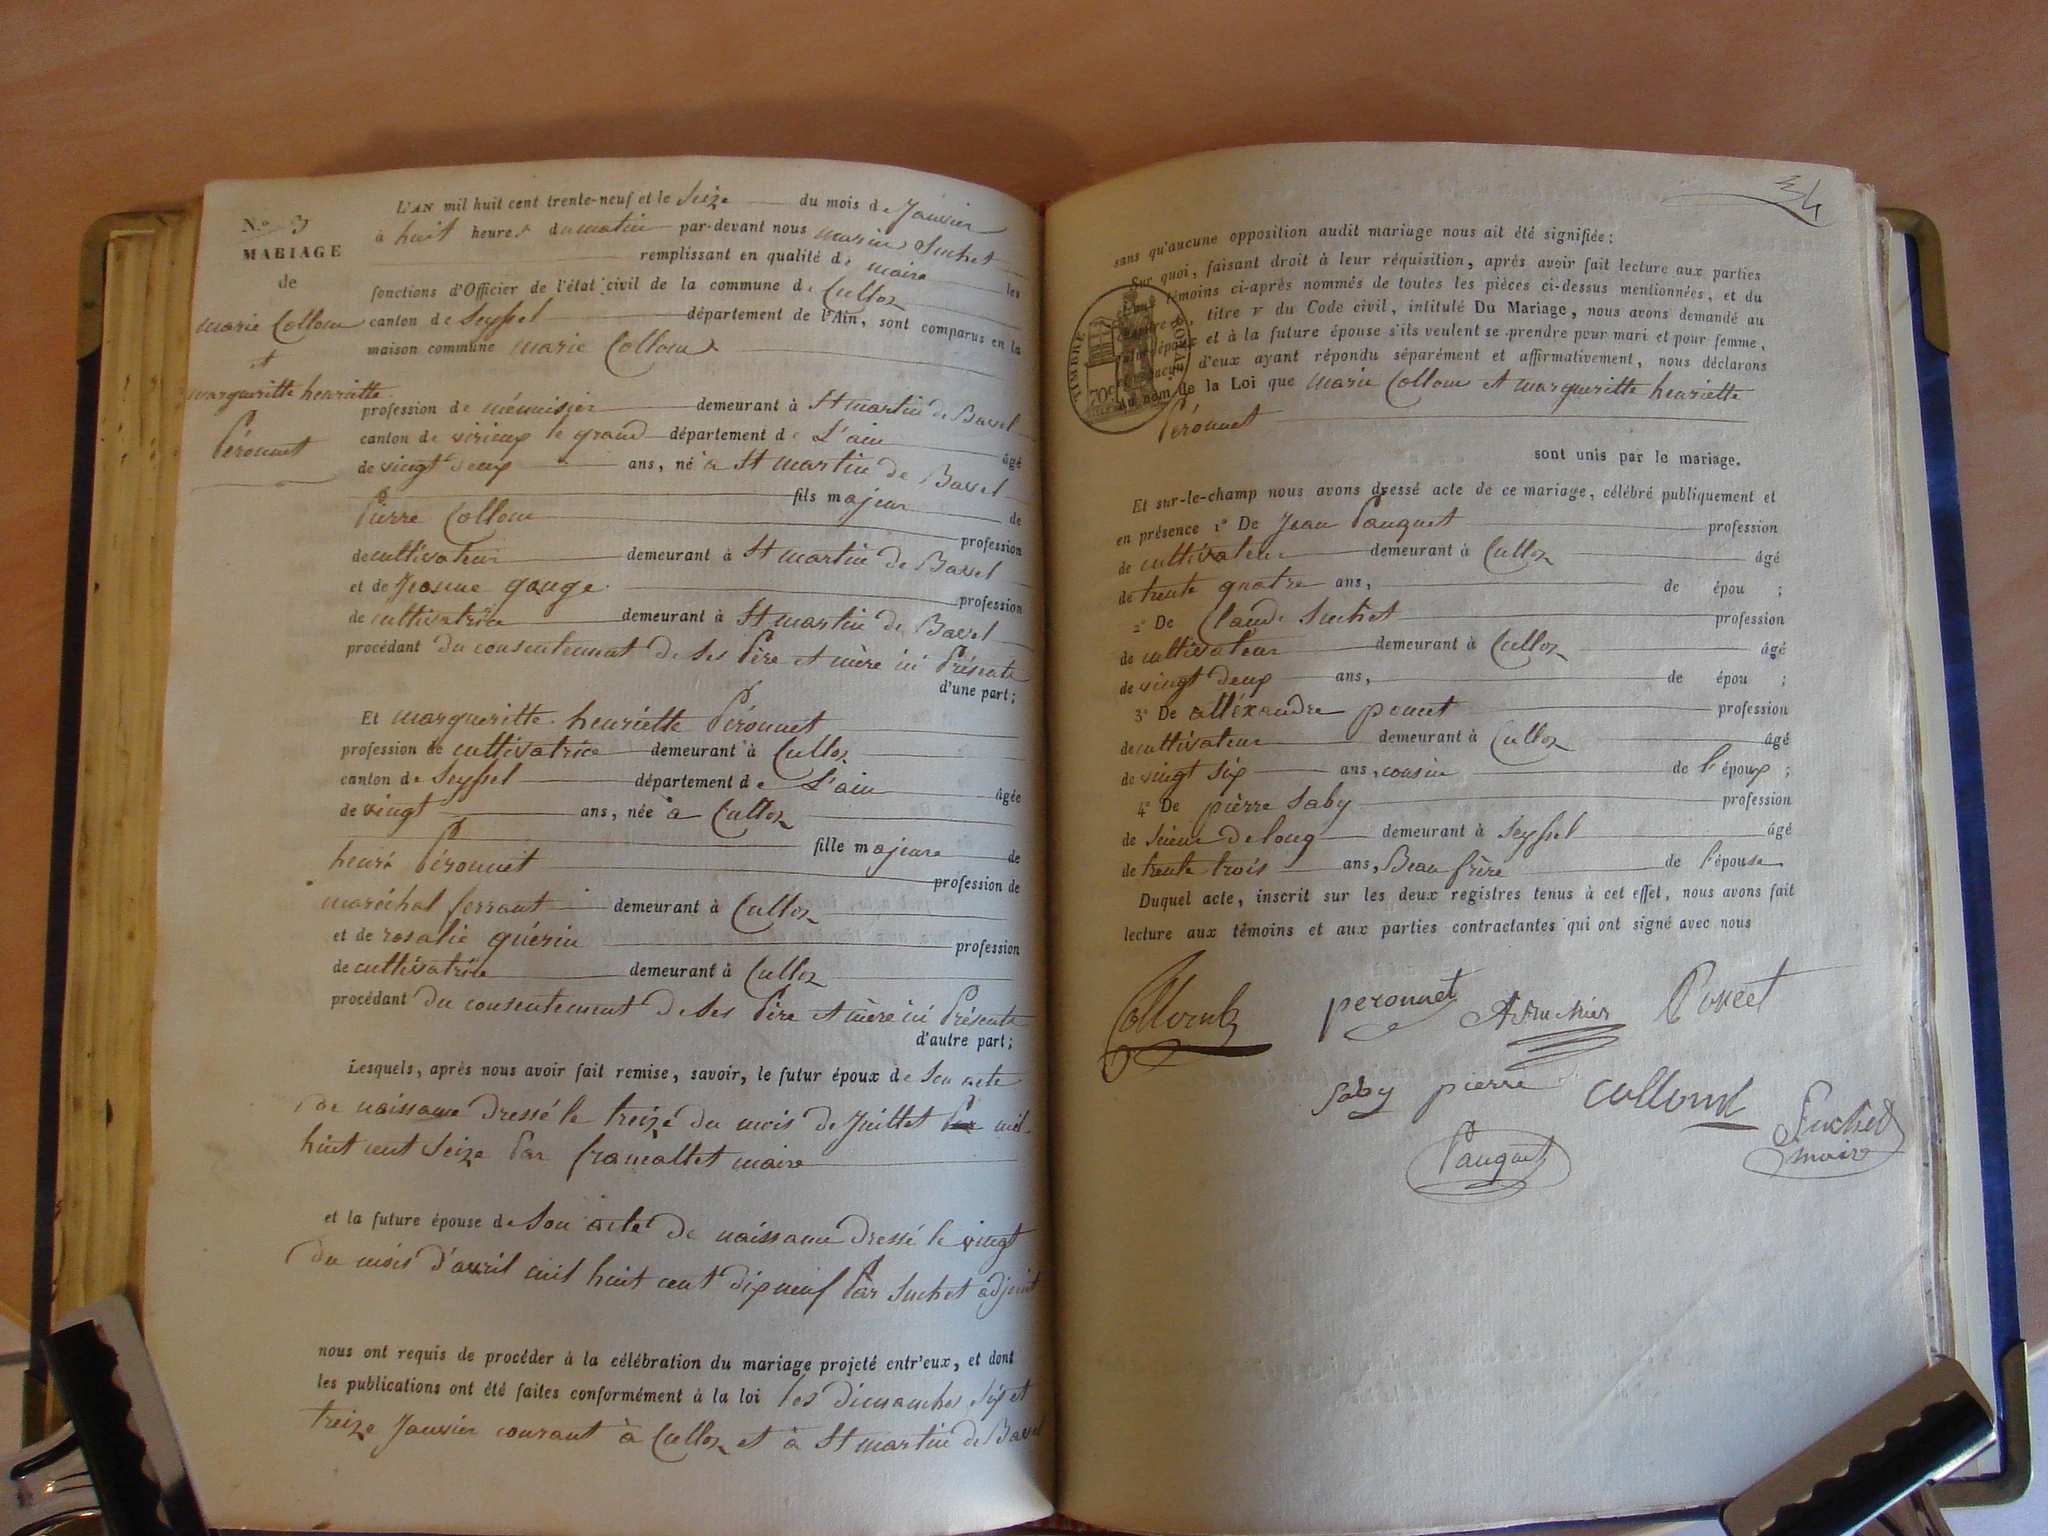 N.º 3
MARIAGE
de
marie Collom
et
margueritte henriette
Péronnet
L'AN mil huit cent trente-neuf et le Seize du mois de Janvier
à huit heures du matin par-devant nous marin Suchet
remplissant en qualité de maire les
fonctions d'Officier de l'état civil de la commune de Culloz
canton de Seyssel département de l'Ain, sont comparus en la
maison commune marie Collom
profession de ménuisier demeurant à St martin de Bavel
canton de virieux le grand département de L'ain âgé
de vingt deux ans, né à St martin de Bavel
fils majeur de
Pierre Collom profession
de cultivateur demeurant à St martin de Bavel
et de Jeanne gouge profession
de cultivatrice demeurant à St martin de Bavel
procédant du consentement de ses Père et mère ici Présents
d'une part;
Et margueritte henriette Péronnet
profession de cultivatrice demeurant à Culloz
canton de Seyssel département de L'ain âgée
de vingt ans, née à Culloz
fille majeure de
henri Péronnet profession de
maréchal ferrant demeurant à Culloz
et de rosalie guérin profession
de cultivatrice demeurant à Culloz
procédant du consentement de ses Père et mère ici Présents
d'autre part;
Lesquels, après nous avoir fait remise, savoir, le futur époux de son acte
de naissance dressé le treize du mois de Juillet mil
huit cent Seize Par maire
et la future épouse de son acte de naissance dressé le vingt
du mois d'avril mil huit cent dix neuf Par Suchet adjoint
nous ont requis de procéder à la célébration du mariage projeté entr'eux, et dont
les publications ont été faites conformément à la loi les dimanches Six et
treize Janvier courant à Culloz et à St martin de Bavel
34
sans qu'aucune opposition audit mariage nous ait été signifiée;
Sur quoi, faisant droit à leur réquisition, après avoir fait lecture aux parties
témoins ci-après nommés de toutes les pièces ci-dessus mentionnées, et du
titre V du Code civil, intitulé Du Mariage, nous avons demandé au
futur époux et à la future épouse s'ils veulent se prendre pour mari et pour femme,
chacun d'eux ayant répondu séparément et affirmativement, nous déclarons
au nom de la Loi que marie Collom et margueritte henriette
Péronnet
sont unis par le mariage.
TIMBRE ROYAL
70c
Et sur-le-champ nous avons dressé acte de ce mariage, célébré publiquement et
en présence 1º De Jean Pauquet profession
de cultivateur demeurant à Culloz âgé
de trente quatre ans, de épou ;
2º De Claude Suchet profession
de cultivateur demeurant à Culloz âgé
de vingt deux ans, de épou ;
3º De alléxandre poncet profession
de cultivateur demeurant à Culloz âgé
de vingt six ans, cousin de l'époux ;
4º De pièrre Saby profession
de Scieur de long demeurant à Seyssel âgé
de trente trois ans, Beau frère de l'épouse
Duquel acte, inscrit sur les deux registres tenus à cet effet, nous avons fait
lecture aux témoins et aux parties contractantes qui ont signé avec nous
Collomb peronnet Poncet
Saby pierre collomb Suchet
Pauquet maire